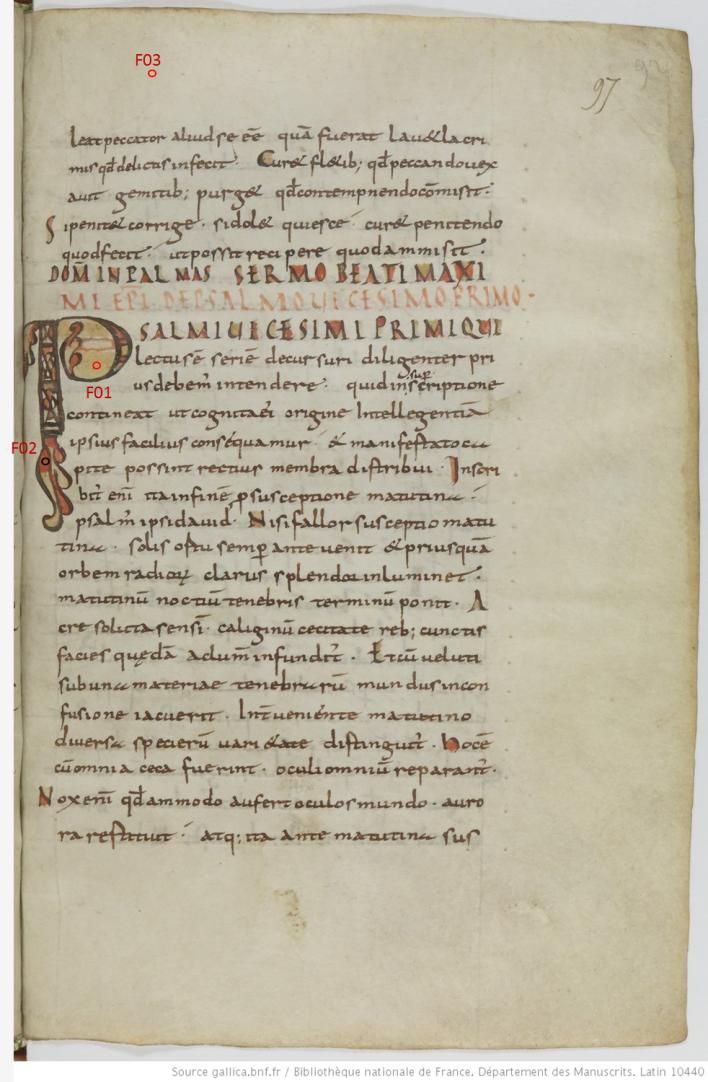 F03
97
leat peccator aliud se eē quā fuerat lau&lacri
mis qđ delictis infecit. Cur& fl&ib; qđ peccando uex
auit gemitib; purg& qđ contempnendo cōmisit.
Si penit& corrige. si dol& quiesce cur& penitendo
quod fecit. ut possit recipere quod ammisit.
DOM̄ IN PALMAS SERMO BEATI MAXI
MI EP̄I DE PSALMO UICESIMO PRIMO
PSALMI UICESIMI PRIMI QUI
lectus ē seriē decursuri diligenter pri
F01
us debem̄ intendere. quid inscriptione
super
contineat ut cognita ei origine Intellegentiā
ipsius facilius conséquamur & manifestato ca
F02
pite possint rectius membra distribui. Inscri
bit̄ eni ita in finē p susceptione matutina
psalm̄ ipsi dauid. Nisi fallor susceptio matu
tina. solis ortu semp ante uenit & priusquā
orbem radioꝝ clarus splendor inluminet.
matutinū noctiū tenebris terminū ponit. A
cre solita sensi. caliginū cecitate reb; cunctis
facies quędā ad um̄ infundit̄. Et cū ueluti
sub una materiae tenebrarū mundus incon
fusione iacuerit. Int̄ueniénte matutino
diuersa specierū uari&ate distinguit̄. hoc ē
cū omnia ceca fuerint. oculi omniū reparant̄.
Nox eni qđammodo aufert oculos mundo. auro
ra restituit atq; ita ante matutina sus
Source gallica.bnf.fr / Bibliothèque nationale de France. Département des Manuscrits. Latin 10440